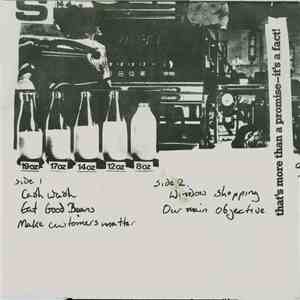 S
19oz 17oz 14oz 12oz 8oz
that's more than a promise–it's a fact!
Side 1
Cash Wash
Eat Good Beans
Make customers matter
Side 2
Window Shopping
Our main Objective